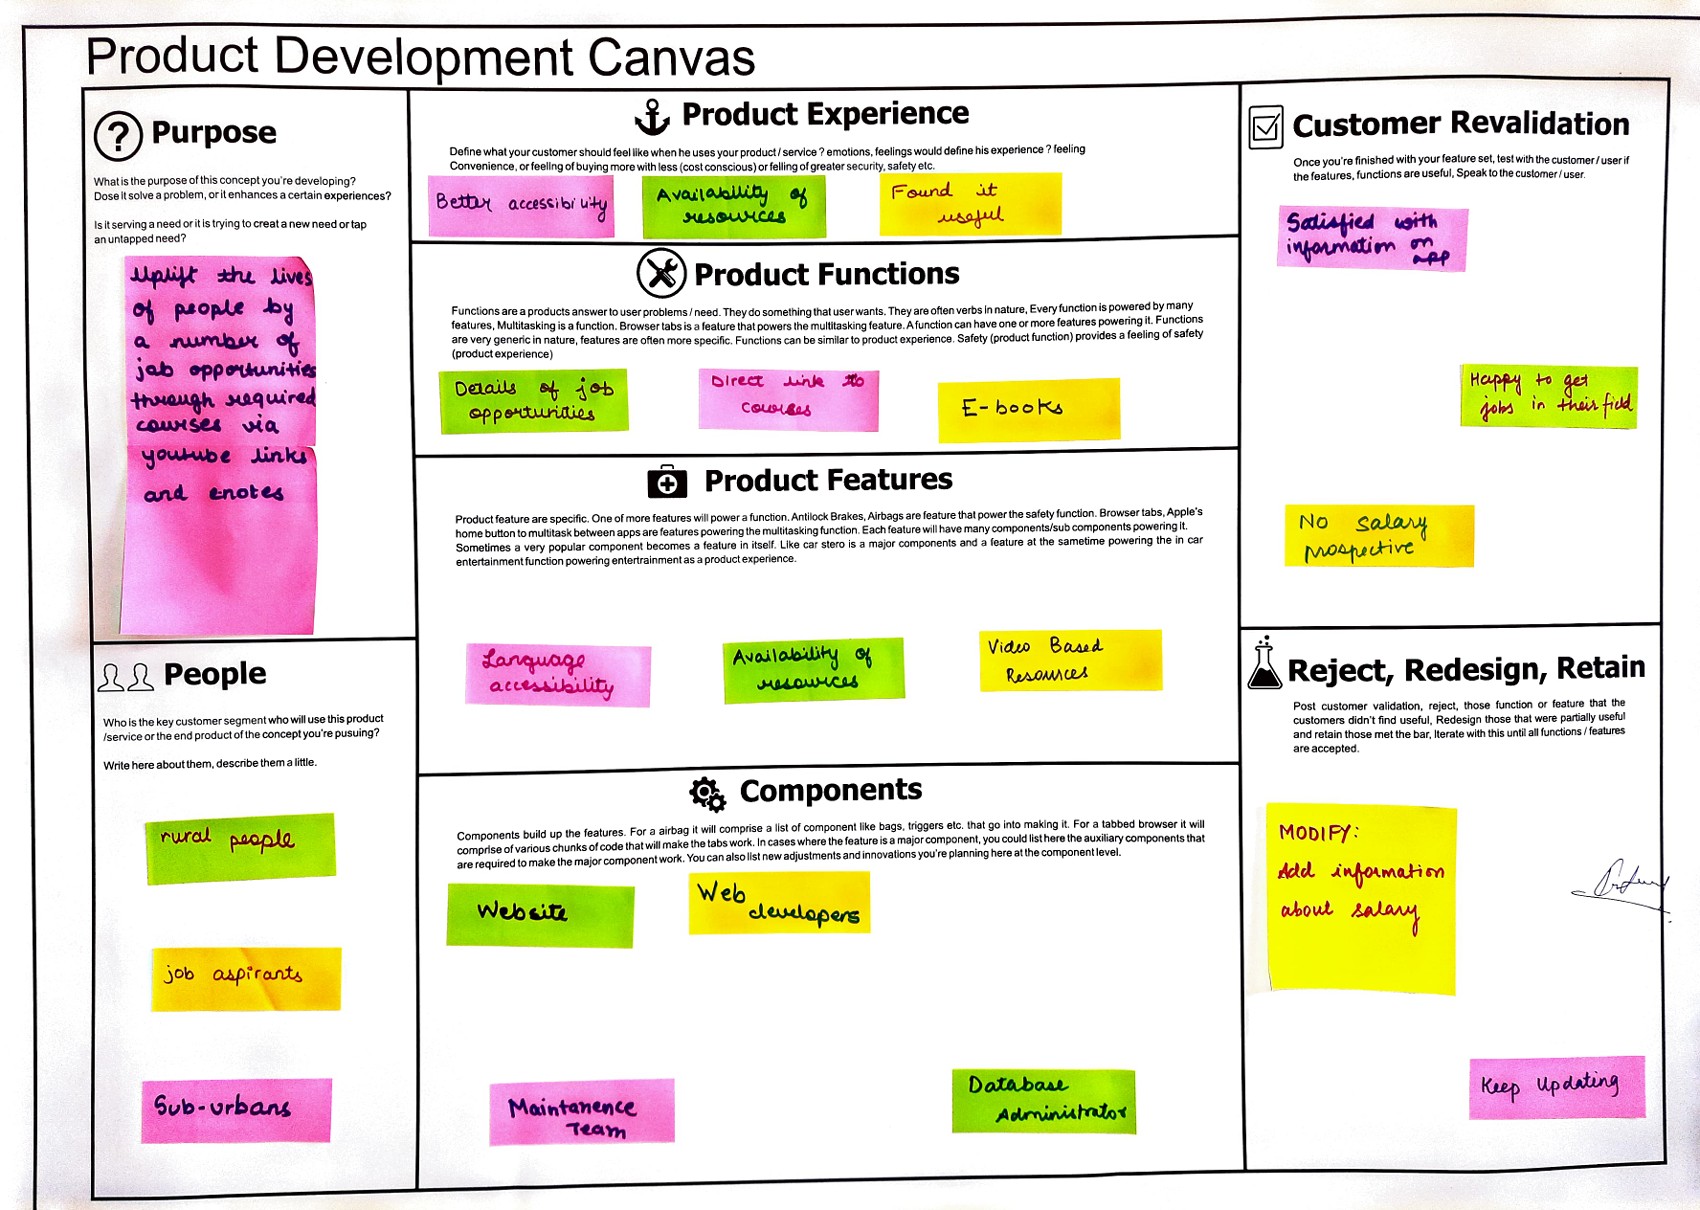 Product Development Canvas
Purpose
What is the purpose of this concept you're developing?
Dose it solve a problem, or it enhances a certain experiences?
Is it serving a need or it is trying to creat a new need or tap
an untapped need?
Uplift the lives
of people by
a number of
job opportunities
through required
courses via
youtube links
and enotes
People
Who is the key customer segment who will use this product
/service or the end product of the concept you're pusuing?
Write here about them, describe them a little.
rural people
job aspirants
Sub-urbans
Product Experience
Define what your customer should feel like when he uses your product / service ? emotions, feelings would define his experience ? feeling
Convenience, or feeling of buying more with less (cost conscious) or felling of greater security, safety etc.
Better accessibility
Availability of
resources
Found it
useful
Product Functions
Functions are a products answer to user problems / need. They do something that user wants. They are often verbs in nature, Every function is powered by many
features, Multitasking is a function. Browser tabs is a feature that powers the multitasking feature. A function can have one or more features powering it. Functions
are very generic in nature, features are often more specific. Functions can be similar to product experience. Safety (product function) provides a feeling of safety
(product experience)
Details of job
opportunities
Direct link to
courses
E-books
Product Features
Product feature are specific. One of more features will power a function. Antilock Brakes, Airbags are feature that power the safety function. Browser tabs, Apple's
home button to multitask between apps are features powering the multitasking function. Each feature will have many components/sub components powering it.
Sometimes a very popular component becomes a feature in itself. Like car stero is a major components and a feature at the sametime powering the in car
entertainment function powering entertrainment as a product experience.
Language
accessibility
Availability of
resources
Video Based
Resources
Components
Components build up the features. For a airbag it will comprise a list of component like bags, triggers etc. that go into making it. For a tabbed browser it will
comprise of various chunks of code that will make the tabs work. In cases where the feature is a major component, you could list here the auxiliary components that
are required to make the major component work. You can also list new adjustments and innovations you're planning here at the component level.
Website
Web
developers
Maintanence
Team
Database
Administrator
Customer Revalidation
Once you're finished with your feature set, test with the customer / user if
the features, functions are useful, Speak to the customer / user.
Satisfied with
information on
app
Happy to get
jobs in their field
No salary
prospective
Reject, Redesign, Retain
Post customer validation, reject, those function or feature that the
customers didn't find useful, Redesign those that were partially useful
and retain those met the bar, Iterate with this until all functions / features
are accepted.
MODIFY:
Add information
about salary
Keep Updating